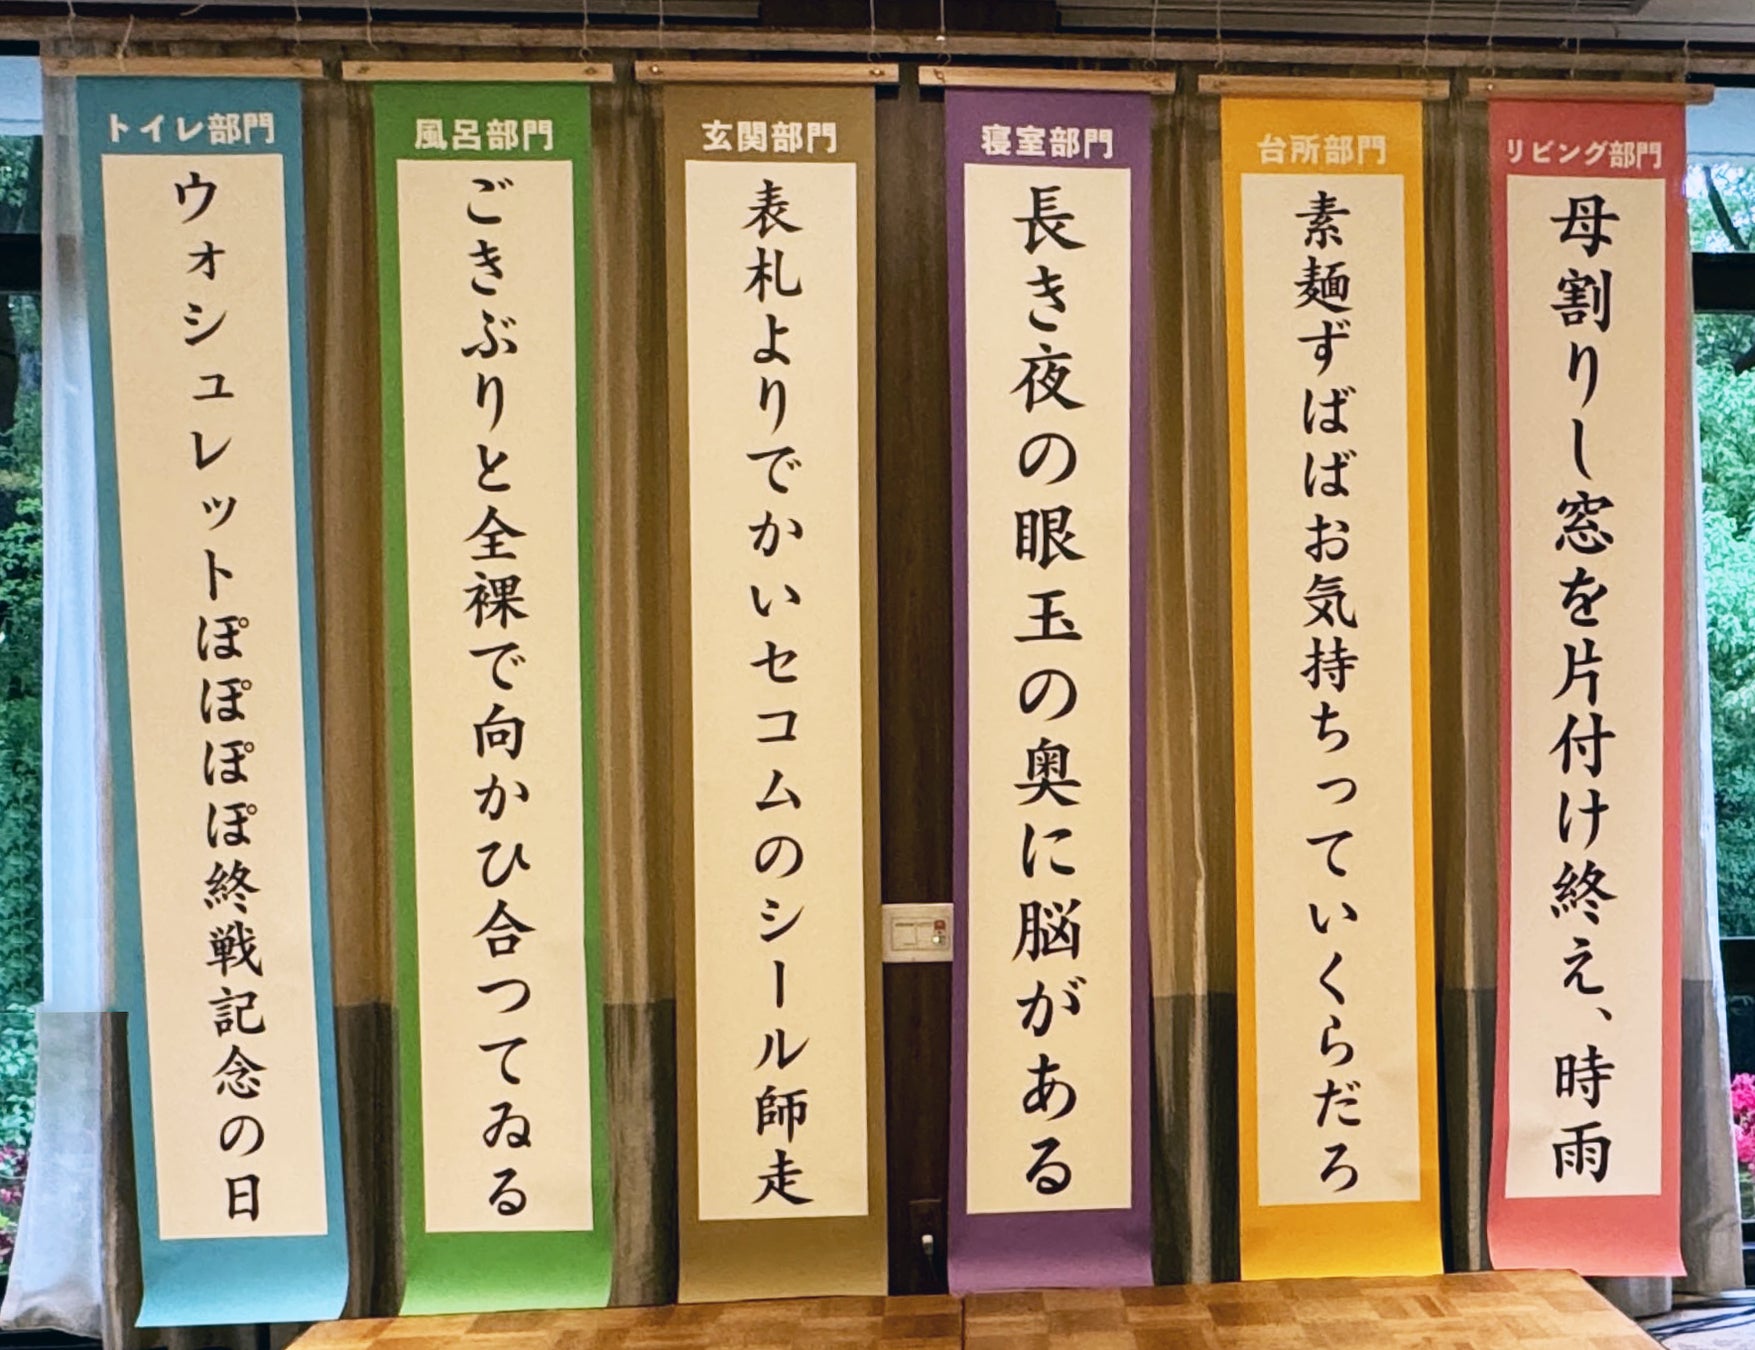 リビング部門
母割りし窓を片付け終え、時雨
台所部門
素麺ずばばお気持ちっていくらだろ
寝室部門
長き夜の眼玉の奥に脳がある
玄関部門
表札よりでかいセコムのシール師走
風呂部門
ごきぶりと全裸で向かひ合つてゐる
トイレ部門
ウォシュレットぽぽぽぽ終戦記念の日